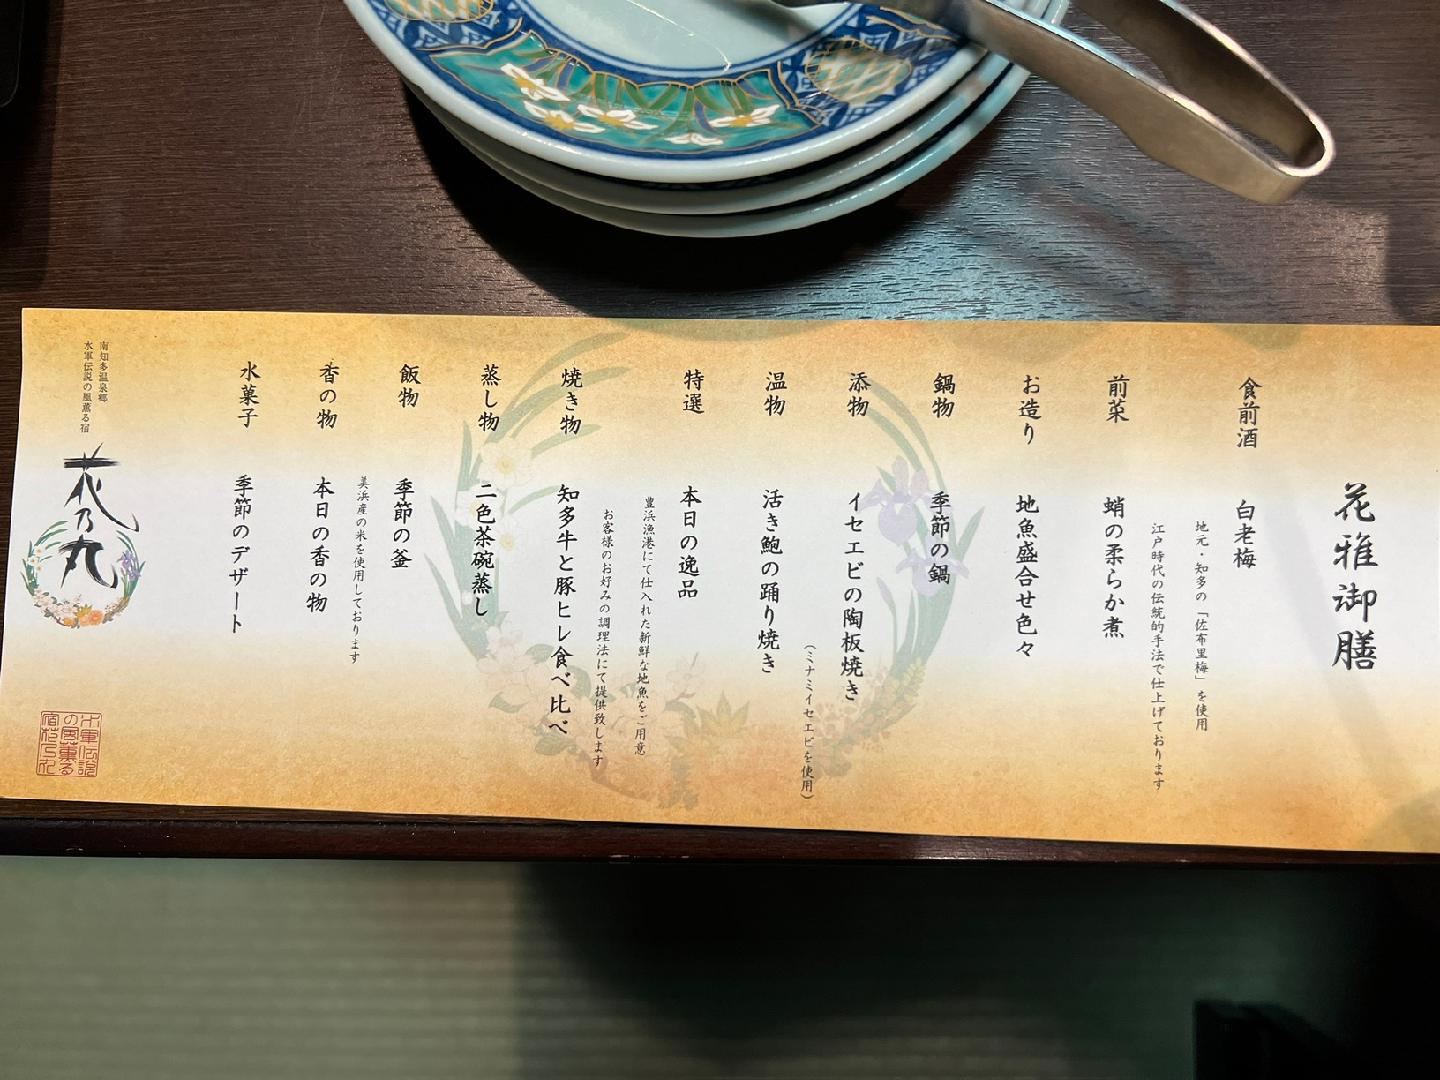 花雅御膳
食前酒 白老梅
地元・知多の「佐布里梅」を使用
江戸時代の伝統的手法で仕上げております
前菜 蛸の柔らか煮
お造り 地魚盛合せ色々
鍋物 季節の鍋
添物 イセエビの陶板焼き
(ミナミイセエビを使用)
温物 活き鮑の踊り焼き
特選 本日の逸品
豊浜漁港にて仕入れた新鮮な地魚をご用意
お客様のお好みの調理法にて提供致します
焼き物 知多牛と豚ヒレ食べ比べ
蒸し物 二色茶碗蒸し
飯物 季節の釜
美浜産の米を使用しております
香の物 本日の香の物
水菓子 季節のデザート
南知多温泉郷
水軍伝説の風薫る宿
花乃丸
水軍伝説
の風薫る
宿花乃丸